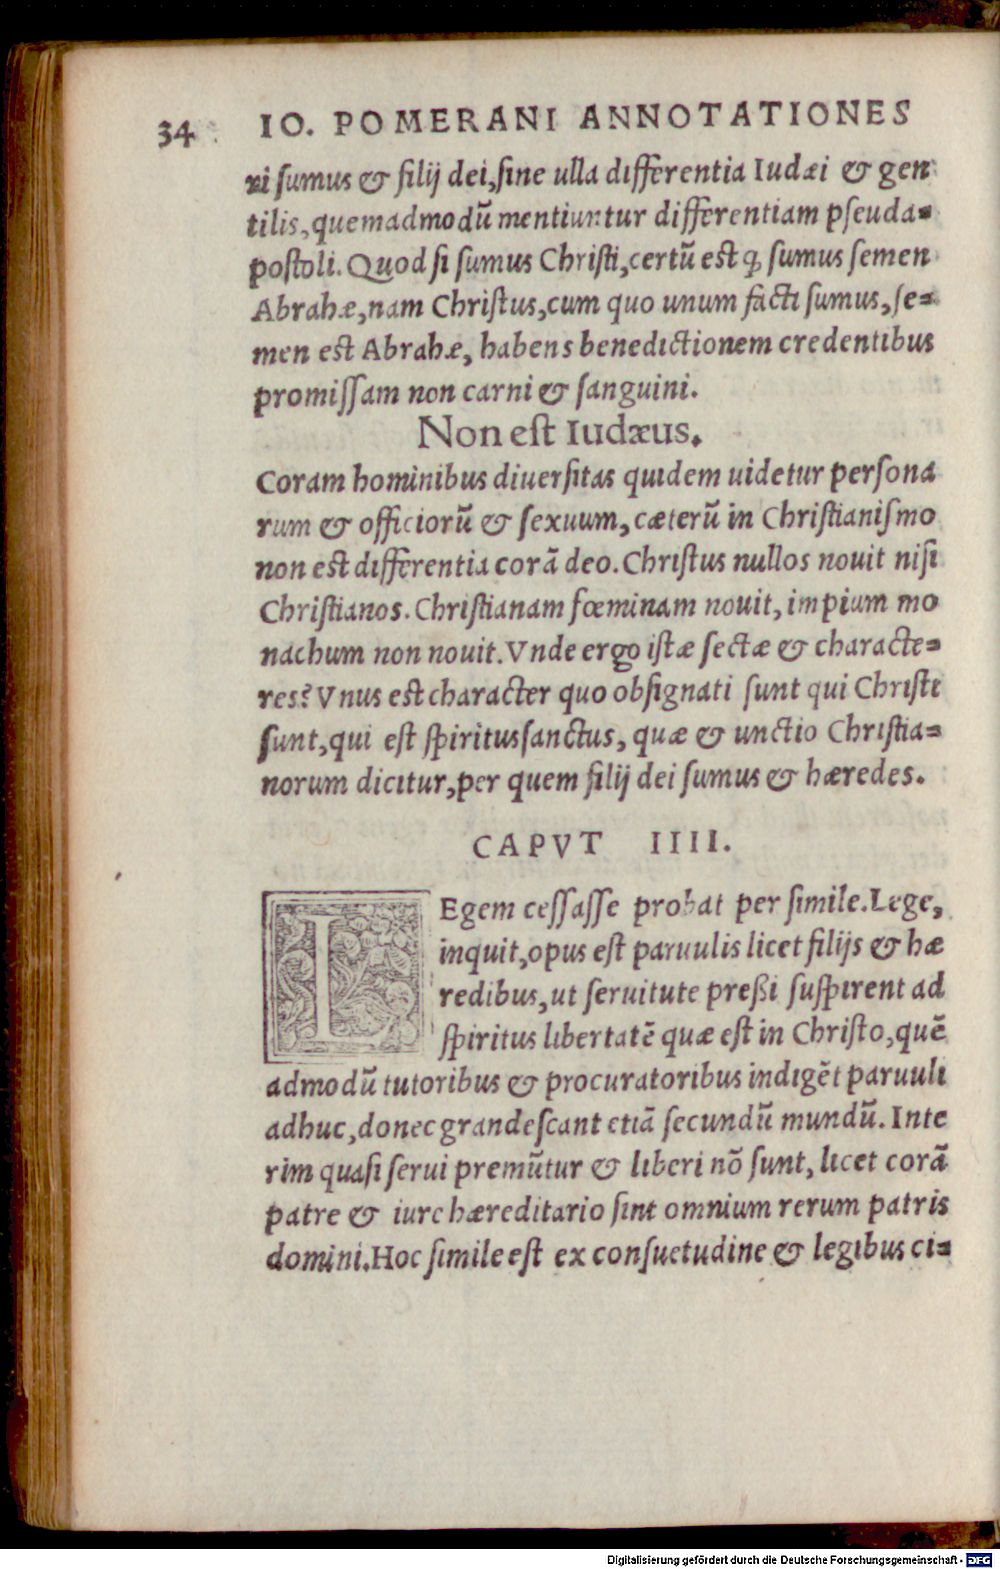 34 IO. POMERANI ANNOTATIONES
ri ſumus & filij dei,ſine ulla differentia Iudæi & gen
tilis,quemadmodū mentiuntur differentiam pſeuda-
poſtoli. Quod ſi ſumus Chriſti,certū est ꝙ ſumus ſemen
Abrahæ,nam Chriſtus,cum quo unum facti ſumus,ſe-
men est Abrahæ, habens benedictionem credentibus
promiſſam non carni & ſanguini.
Non eſt Iudæus.
Coram hominibus diuerſitas quidem uidetur perſona
rum & officiorū & ſexuum, cæterū in Chriſtianiſmo
non est differentia corā deo. Chriſtus nullos nouit niſi
Chriſtianos. Chriſtianam fœminam nouit, impium mo
nachum non nouit. Vnde ergo iſtæ ſectæ & characte-
res? Vnus est character quo obſignati ſunt qui Chriſti
ſunt,qui eſt ſpiritusſanctus, quæ & unctio Chriſtia-
norum dicitur,per quem filij dei ſumus & hæredes.
CAPVT IIII.
LEgem ceſſaſſe probat per ſimile. Lege,
inquit,opus eſt paruulis licet filijs & hæ
redibus,ut ſeruitute preßi ſuſpirent ad
ſpiritus libertatē quæ eſt in Chriſto,quē
admodū tutoribus & procuratoribus indigēt paruuli
adhuc,donec grandeſcant etiā ſecundū mundū. Inte
rim quaſi ſerui premūtur & liberi nō ſunt, licet corā
patre & iure hæreditario ſint omnium rerum patris
domini. Hoc ſimile eſt ex conſuetudine & legibus ci-
Digitalisierung gefördert durch die Deutsche Forschungsgemeinschaft - DFG